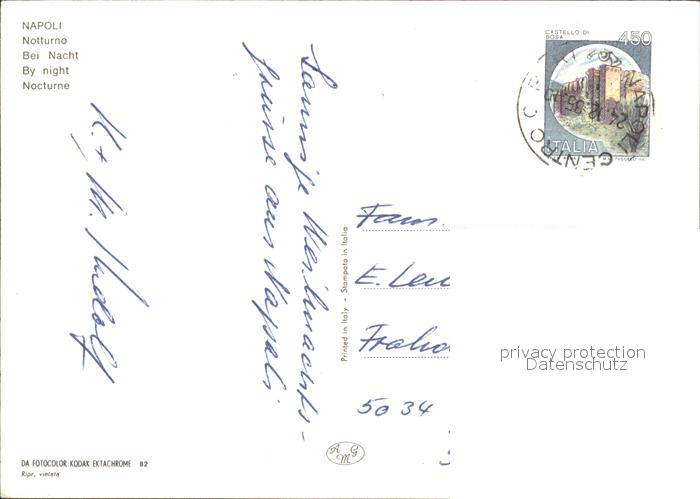 NAPOLI
Notturno
Bei Nacht
By night
Nocturne
CASTELLO DI
BOSA
450
ITALIA
NAPOLI CENTRO C
24.12.85
Sonnige Weihnachts-
grüsse aus Napoli
K. + M. Rudolf
Printed in Italy - Stampato in Italia
Fam.
E.
5034
privacy protection
Datenschutz
A G
M
DA FOTOCOLOR KODAK EKTACHROME 82
Ripr. vietata